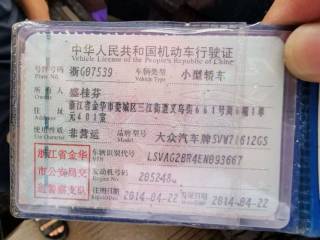 中华人民共和国机动车行驶证
Vehicle License of the People's Republic of China
号牌号码 浙G07539 车辆类型 小型轿车
Plate No. Vehicle Type
所有人 盛桂芬
Owner
住址 浙江省金华市婺城区三江街道义乌街661号
Address 元401室
使用性质 非营运 品牌型号 大众汽车牌
Use Character Model
浙江省金华 车辆识别代号 LSVAG2BR4EN093667
市公安局交 VIN
发动机号码
Engine No.
注册日期 2014-04-22 发证日期 2014-04-22
Register Date Issue Date